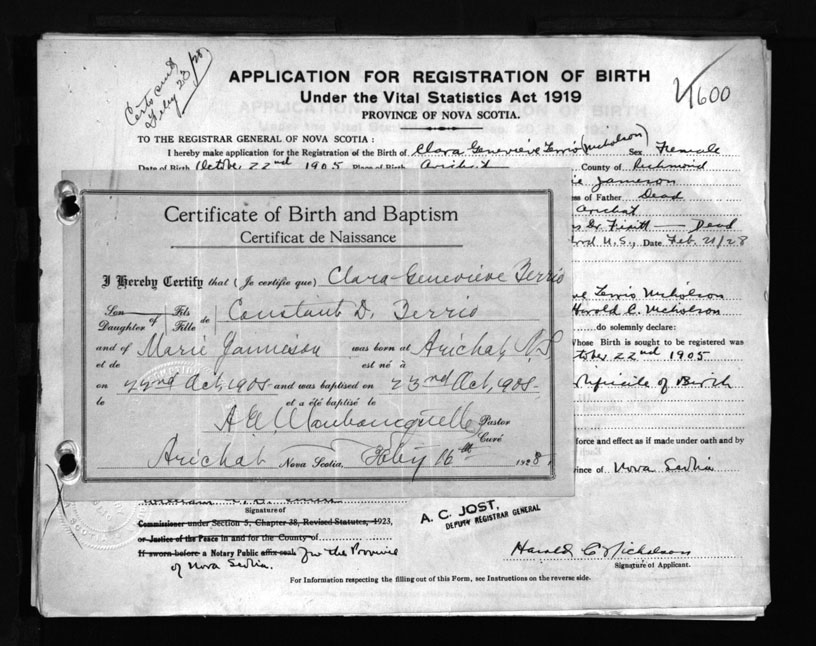 Certs sent
Feby 23/28
1600
APPLICATION FOR REGISTRATION OF BIRTH
Under the Vital Statistics Act 1919
PROVINCE OF NOVA SCOTIA.
TO THE REGISTRAR GENERAL OF NOVA SCOTIA:
I hereby make application for the Registration of the Birth of Clara Genevieve Terrio (Nicholson) Sex Female
Date of Birth October 22nd 1905 Place of Birth Arichat County of Richmond
Jameson
ss of Father Dead
Arichat
Dead
N.S. Date Feb. 21/28
Certificate of Birth and Baptism
Certificat de Naissance
I Hereby Certify that (Je certifie que) Clara Genevieve Terrio
Son Daughter of Fils Fille de Constant D. Terrio
and of et de Marie Jamieson was born at est né à Arichat, N.S.
on le 22nd Oct, 1905 and was baptised on et a été baptisé le 23nd Oct, 1905
Pastor
Curé
Arichat Nova Scotia, Feby 16th 1928,
Terrio Nicholson
Harold C. Nicholson
do solemnly declare:
Whose Birth is sought to be registered was
October 22nd 1905
Certificate of Birth
force and effect as if made under oath and by
ince of Nova Scotia
Signature of
Commissioner under Section 5, Chapter 38, Revised Statutes, 1923,
or Justice of the Peace in and for the County of
If sworn before a Notary Public affix seal. for the Province
of Nova Scotia.
A. C. JOST,
DEPUTY REGISTRAR GENERAL
Harold C Nicholson
Signature of Applicant.
For Information respecting the filling out of this Form, see Instructions on the reverse side.